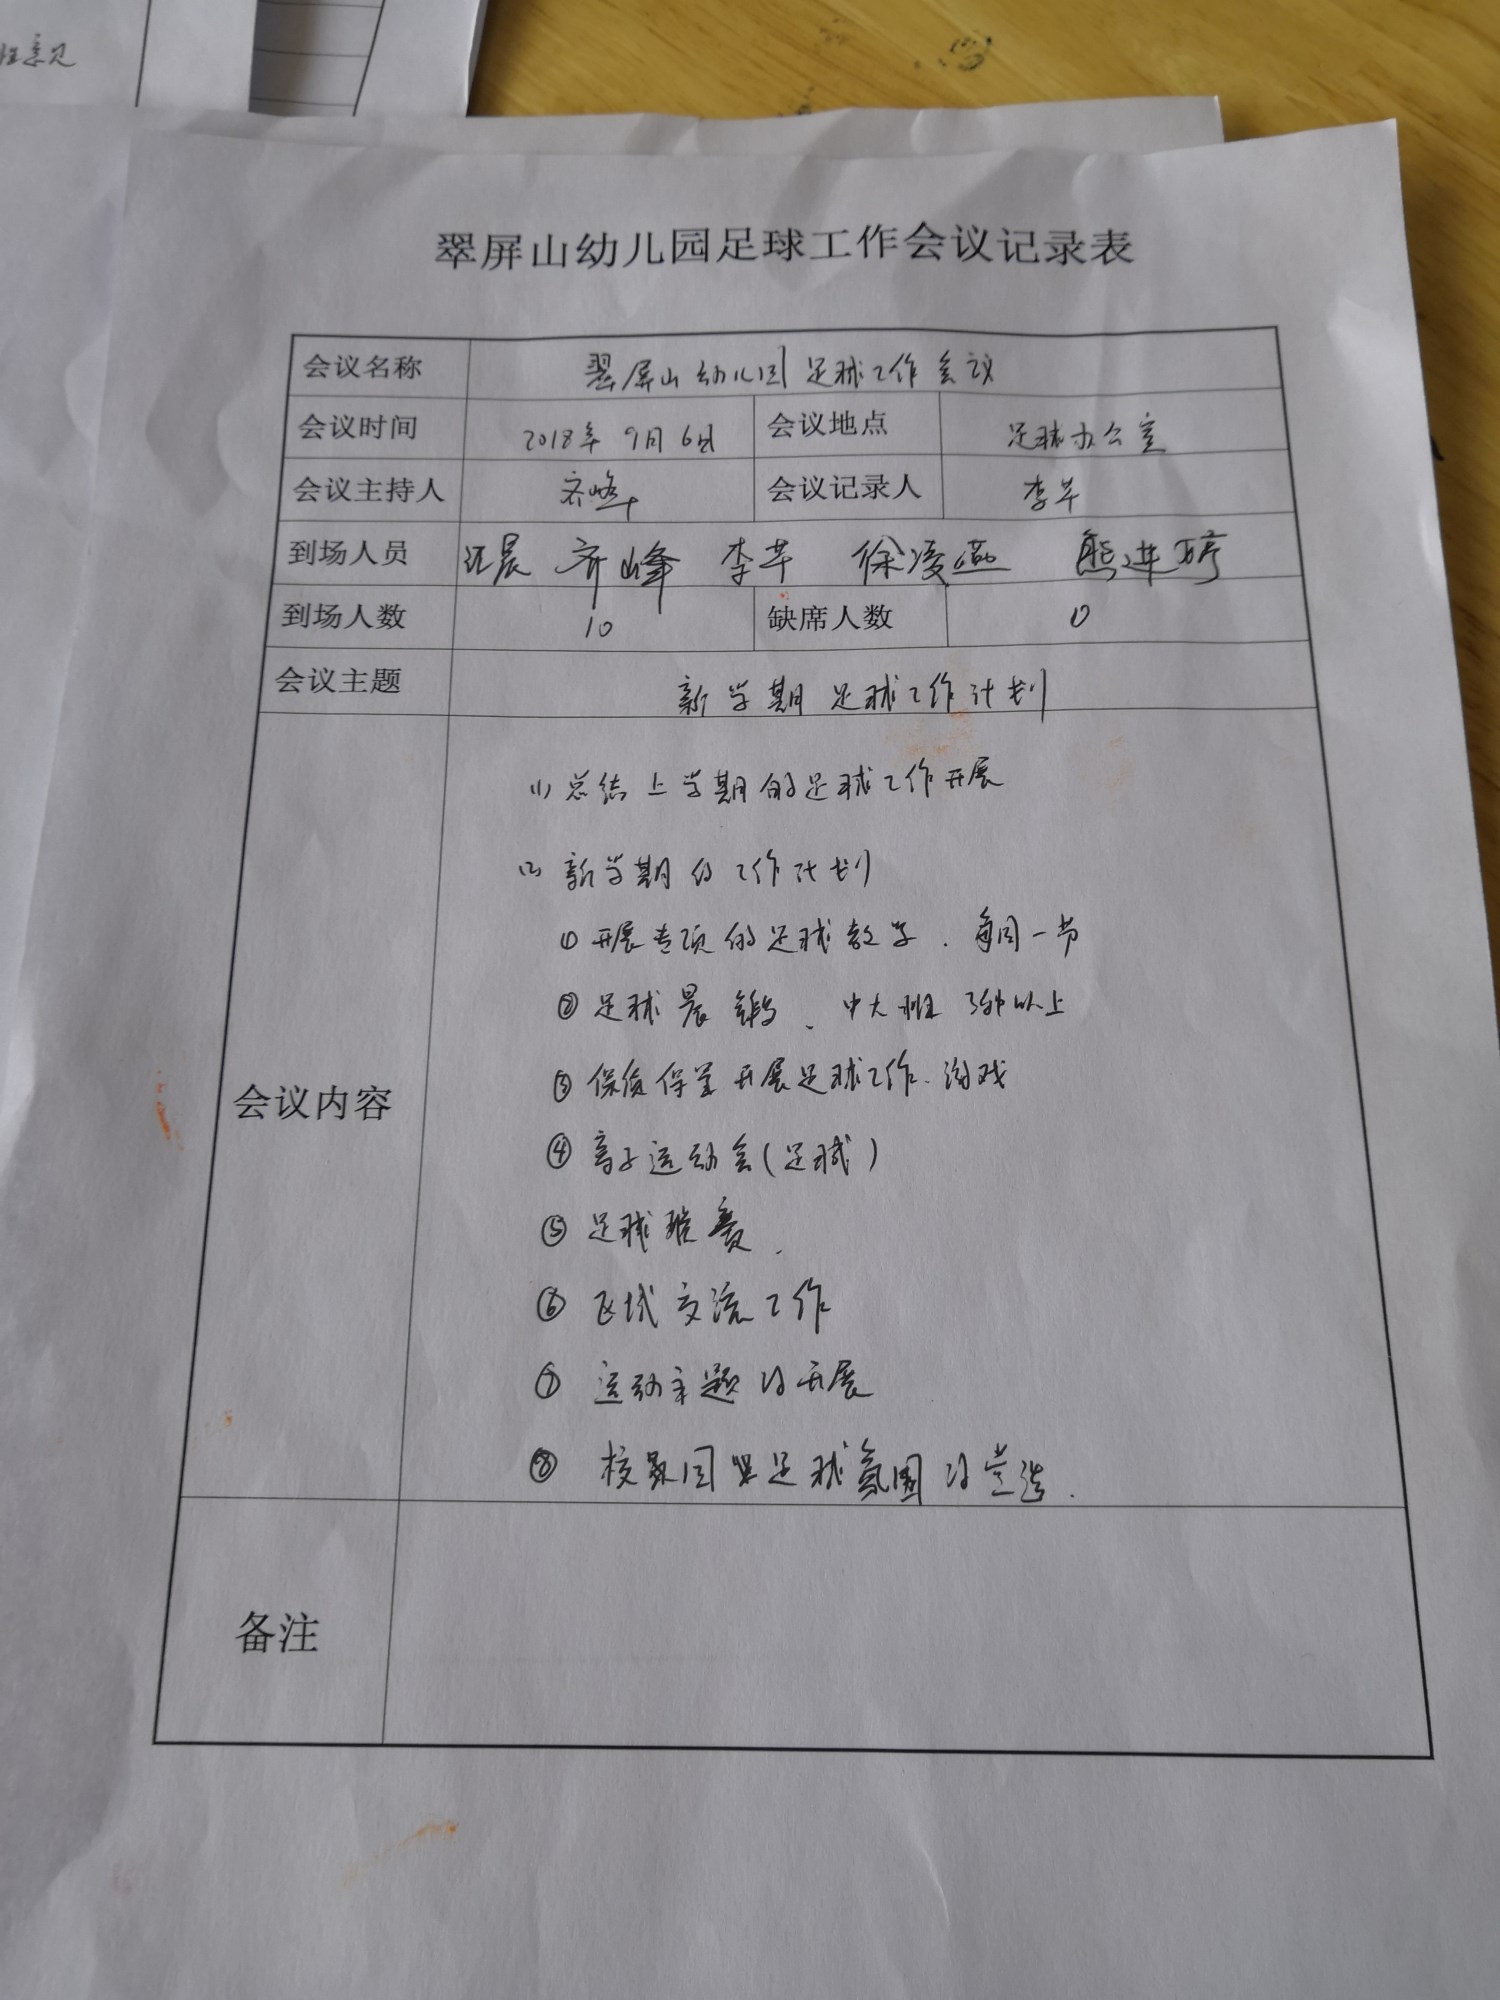 翠屏山幼儿园足球工作会议记录表
会议名称 翠屏山幼儿园足球工作会议
会议时间 2018年9月6日 会议地点 足球办公室
会议主持人 齐峰 会议记录人 李芊
到场人员 汪晨 齐峰 李芊 徐凌燕 熊进婷
到场人数 10 缺席人数 0
会议主题 新学期足球工作计划
(1) 总结上学期的足球工作开展
(2) 新学期的工作计划
① 开展专项的足球教学、每周一节
② 足球晨锻、中大班 以上
③ 保质保量开展足球工作、游戏
④ 亲子运动会(足球)
⑤ 足球班赛.
⑥ 区域交流工作
⑦ 运动主题的开展
会议内容
⑧ 校园 足球氛围的营造.
备注